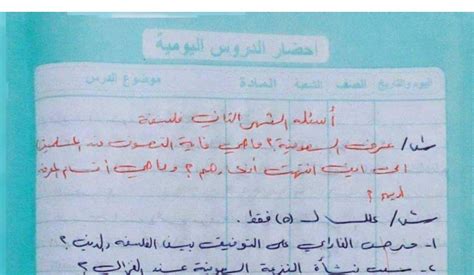 احضار الدروس اليومية
اليوم والتاريخ الصف الشعبة المادة موضوع الدرس
أسئلة الشهر الثاني فلسفة
س١/ عرف السوفية؟ ماهي غاية التصوف عند المسلمين
الى اين انتهت أفكارهم؟ وماهي أقسام المعرفة
لديهم؟
س٢/ علل لـ (٥) فقط.
١- حرص الفارابي على التوفيق بين الفلسفة والدين؟
٢- سبب نشأة النزعة الصوفية عند الغزالي؟